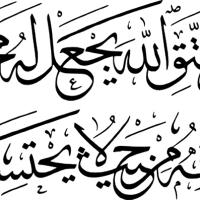 تق الله يجعل له مخ
ـه من حيث لا يحتسـ